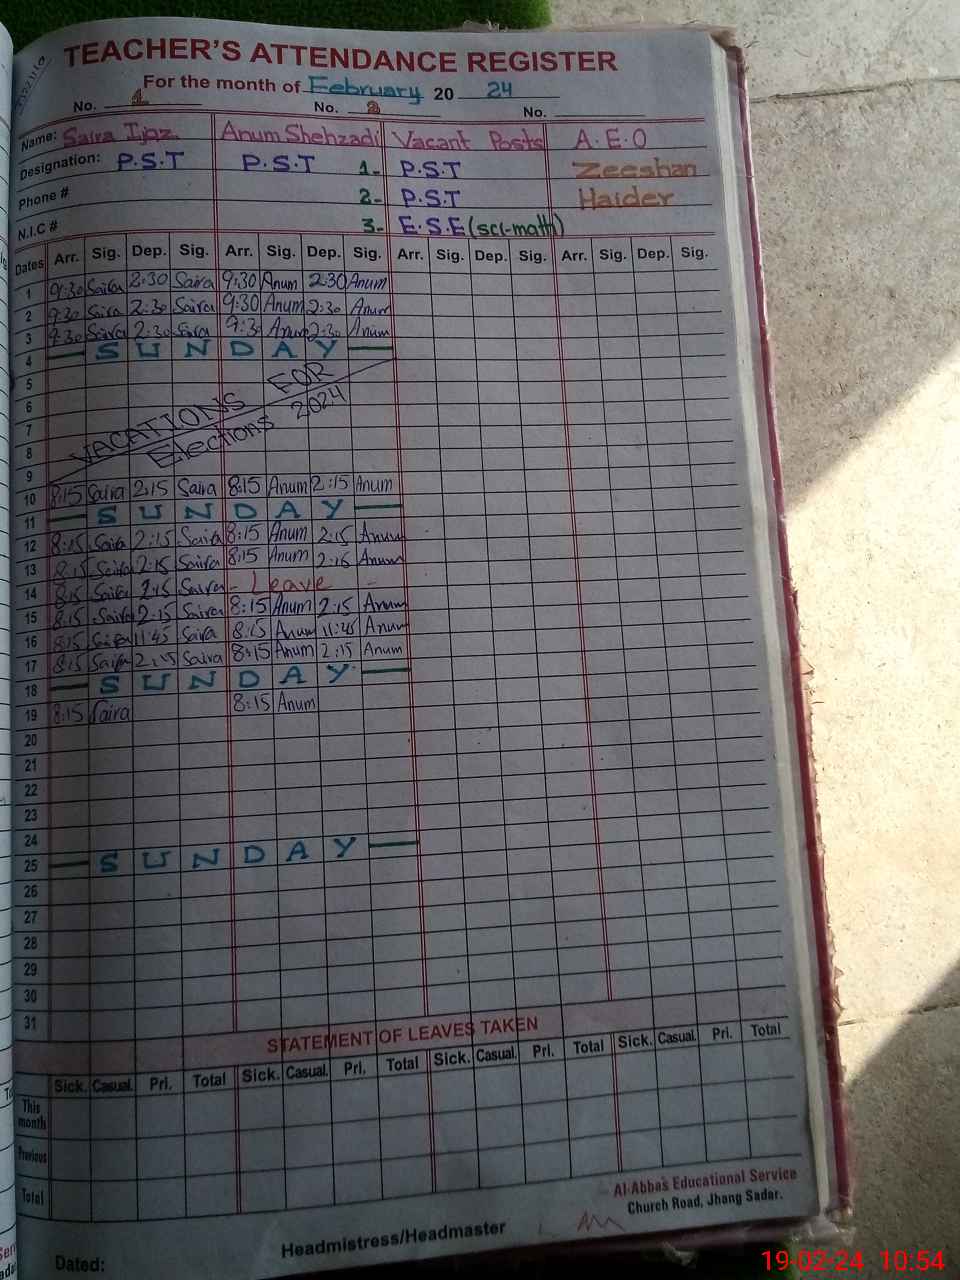 TEACHER'S ATTENDANCE REGISTER
For the month of February 20 24
No. 1 No. 2 No.
Name: Saira Ijaz Anum Shehzadi Vacant Posts A.E.O
Designation: P.S.T P.S.T 1- P.S.T Zeeshan
Phone # 2- P.S.T Haider
N.I.C # 3- E.S.E (sci-math)
Dates Arr. Sig. Dep. Sig. Arr. Sig. Dep. Sig. Arr. Sig. Dep. Sig. Arr. Sig. Dep. Sig.
1 9:30 Saira 2:30 Saira 9:30 Anum 2:30 Anum
2 9:30 Saira 2:30 Saira 9:30 Anum 2:30 Anum
3 9:30 Saira 2:30 Saira 9:30 Anum 2:30 Anum
4 SUNDAY
5
6 VACATIONS FOR
7 Elections 2024
8
9
10 8:15 Saira 2:15 Saira 8:15 Anum 2:15 Anum
11 SUNDAY
12 8:15 Saira 2:15 Saira 8:15 Anum 2:15 Anum
13 8:15 Saira 2:15 Saira 8:15 Anum 2:15 Anum
14 8:15 Saira 2:15 Saira - Leave -
15 8:15 Saira 2:15 Saira 8:15 Anum 2:15 Anum
16 8:15 Saira 11:45 Saira 8:15 Anum 11:45 Anum
17 8:15 Saira 2:15 Saira 8:15 Anum 2:15 Anum
18 SUNDAY
19 8:15 Saira 8:15 Anum
20
21
22
23
24
25 SUNDAY
26
27
28
29
30
31
STATEMENT OF LEAVES TAKEN
Sick. Casual. Pri. Total Sick. Casual. Pri. Total Sick. Casual. Pri. Total Sick. Casual. Pri. Total
This month
Previous
Total
Al-Abbas Educational Service
Church Road, Jhang Sadar.
Headmistress/Headmaster
Dated:
19-02-24 10:54